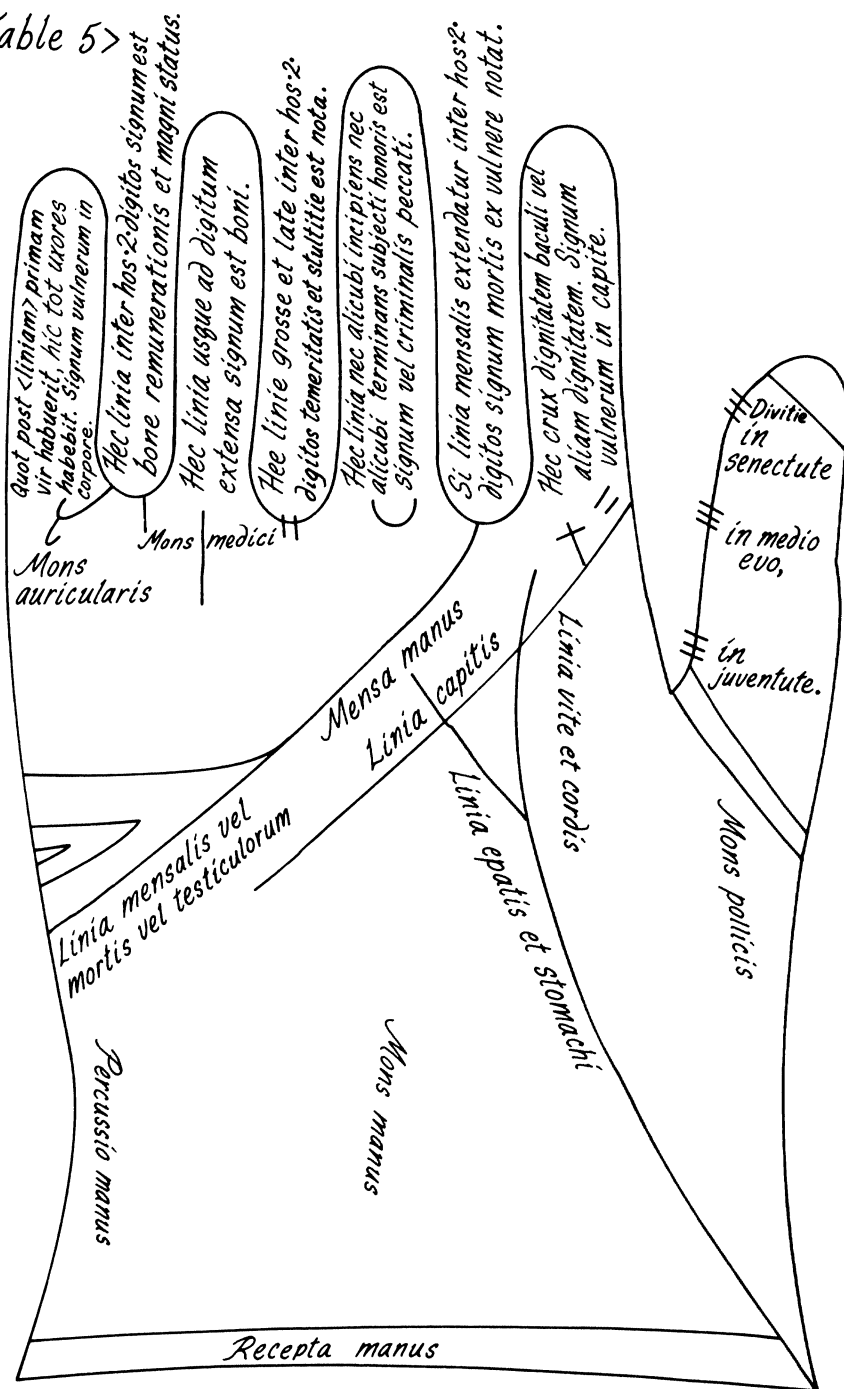 Table 5>
Quot post <liniam> primam
vir habuerit, hic tot uxores
habebit. Signum vulnerum in
corpore.
Hec linia inter hos·2·digitos signum est
bone remunerationis et magni status.
Hec linia usque ad digitum
extensa signum est boni.
Hee linie grosse et late inter hos·2·
digitos temeritatis et stultitie est nota.
Hec linia nec alicubi incipiens nec
alicubi terminans subjecti honoris est
signum vel criminalis peccati.
Si linia mensalis extendatur inter hos·2·
digitos signum mortis ex vulnere notat.
Hec crux dignitatem baculi vel
aliam dignitatem. Signum
vulnerum in capite.
Divitie
in
senectute
in medio
evo,
in
juventute.
Mons
auricularis
Mons medici
Mensa manus
Linia capitis
Linia vite et cordis
Linia mensalis vel
mortis vel testiculorum
Linia epatis et stomachi
Mons pollicis
Percussio manus
Mons manus
Recepta manus